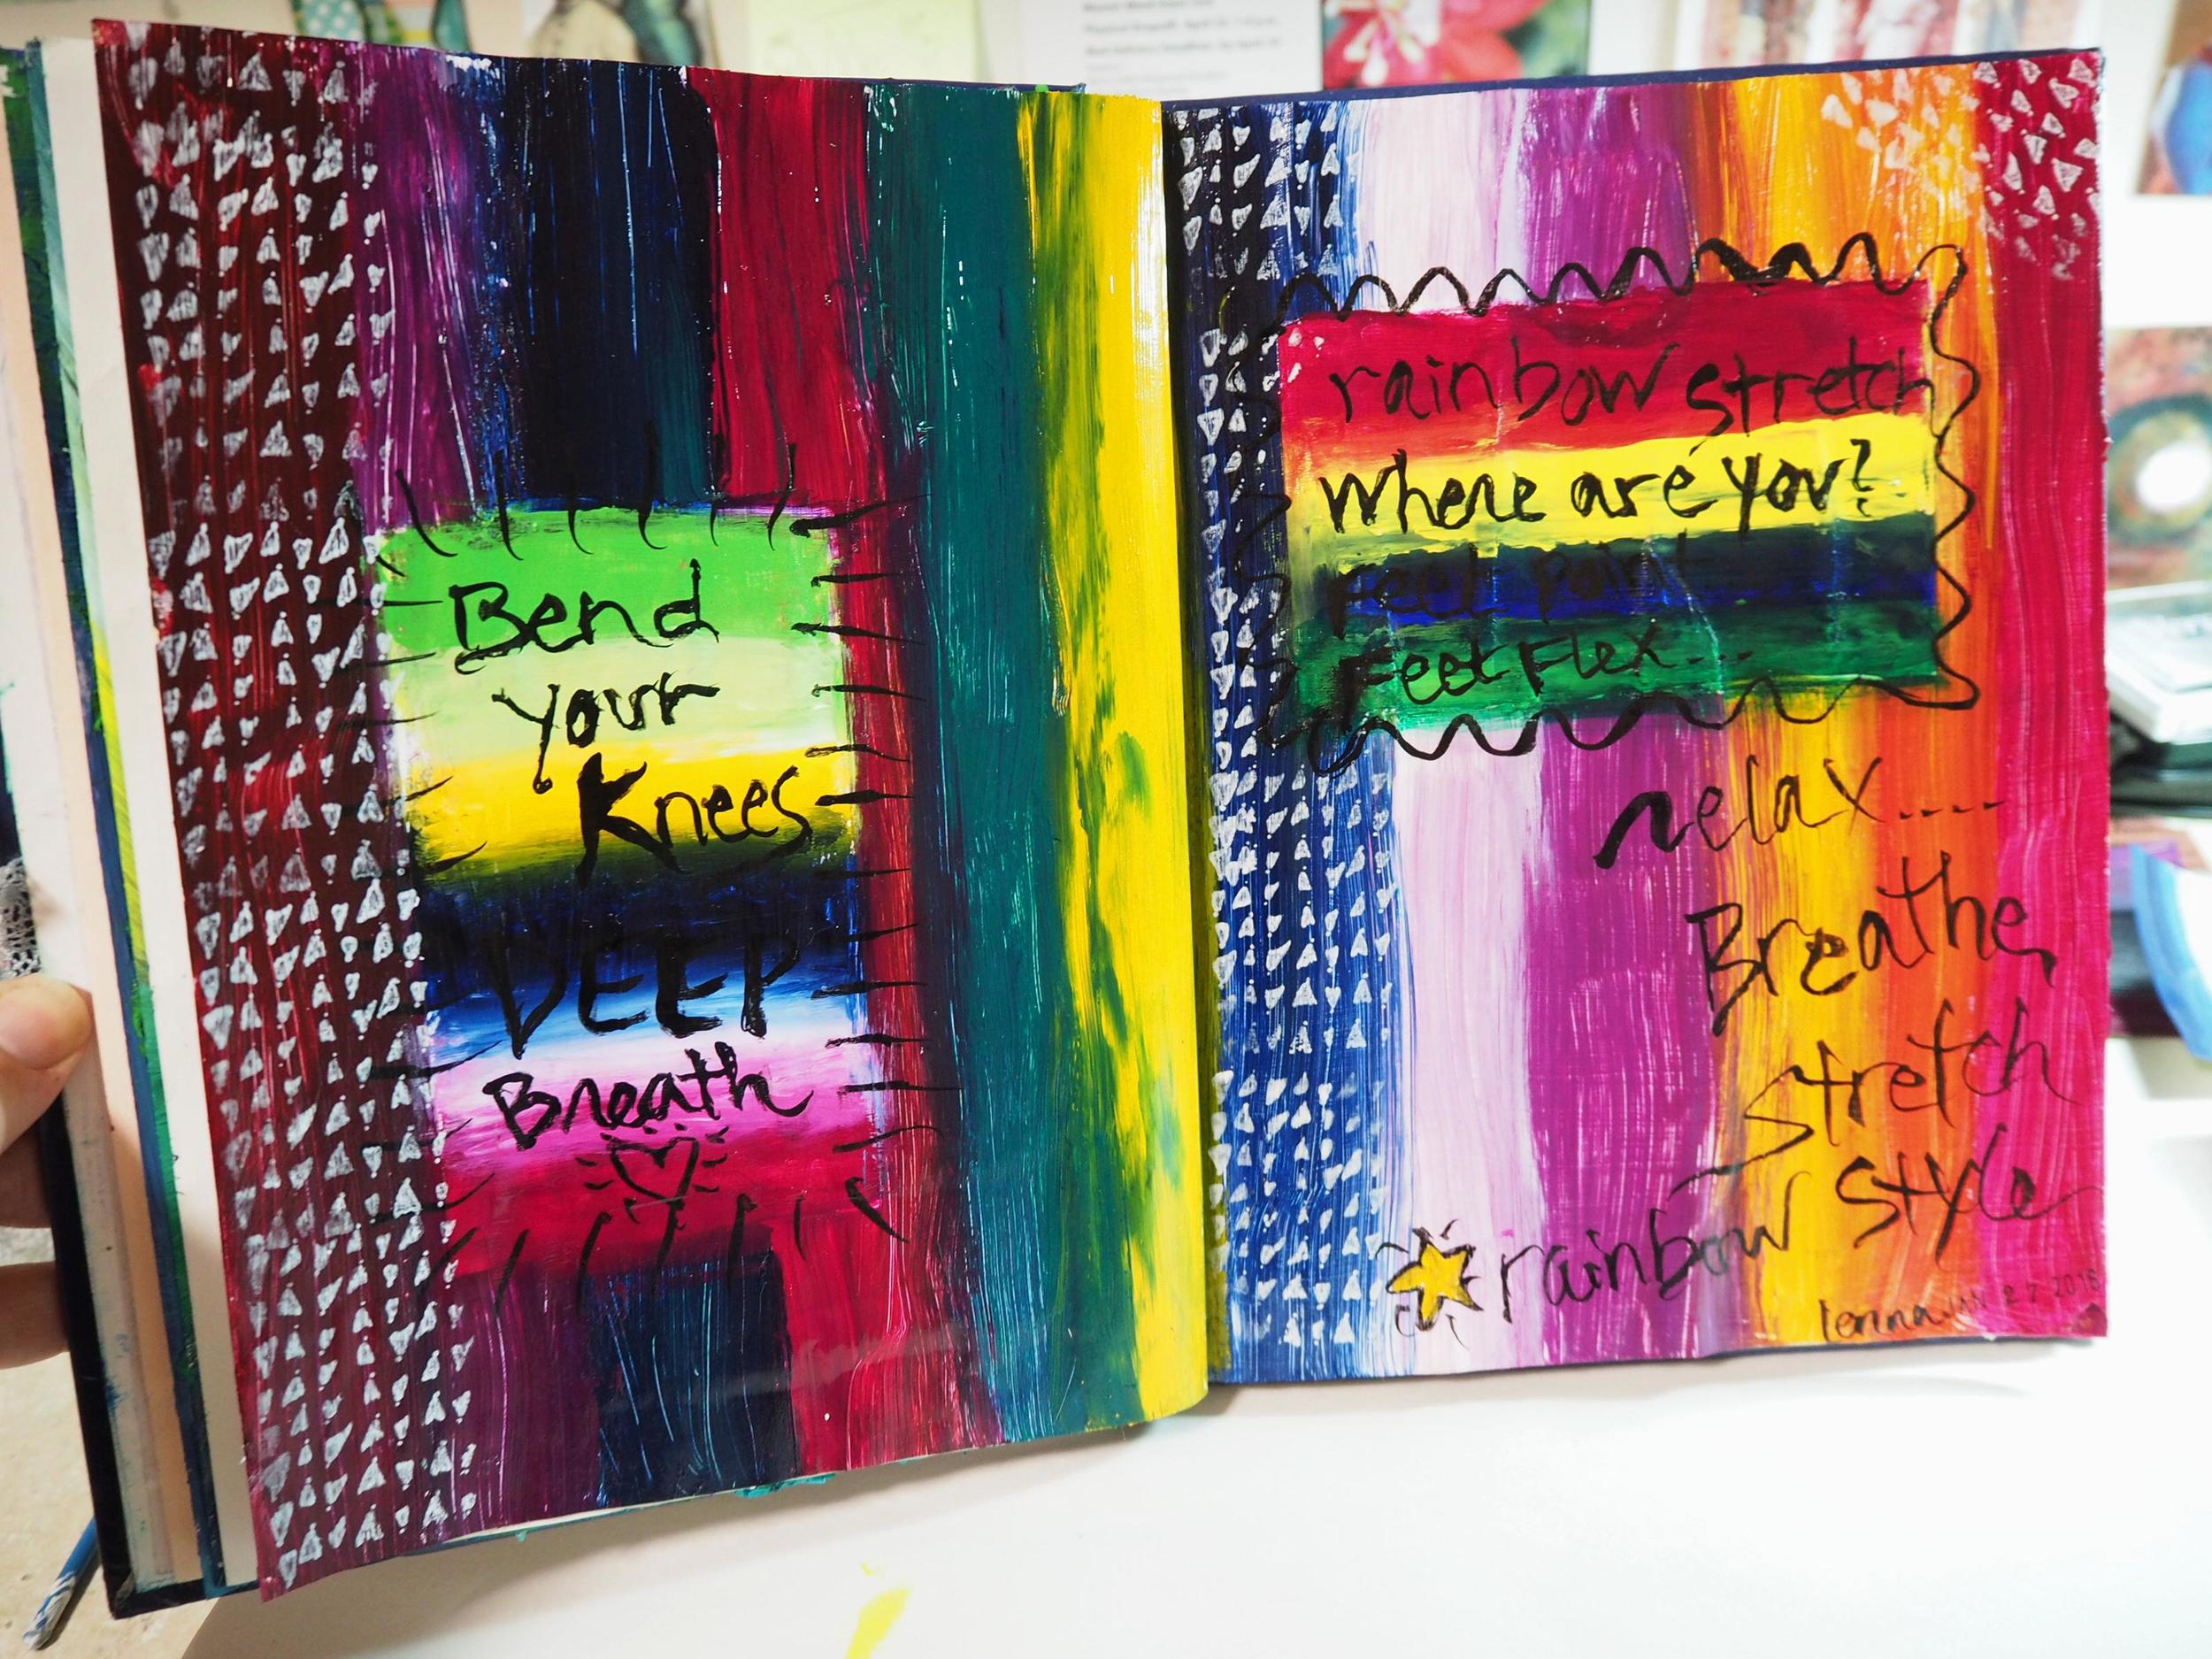 Bend
your
Knees
DEEP
Breath
rainbow stretch
where are you?
Feet point
Feet Flex...
relax....
Breathe
stretch
rainbow style
lenna JAN 27 2018